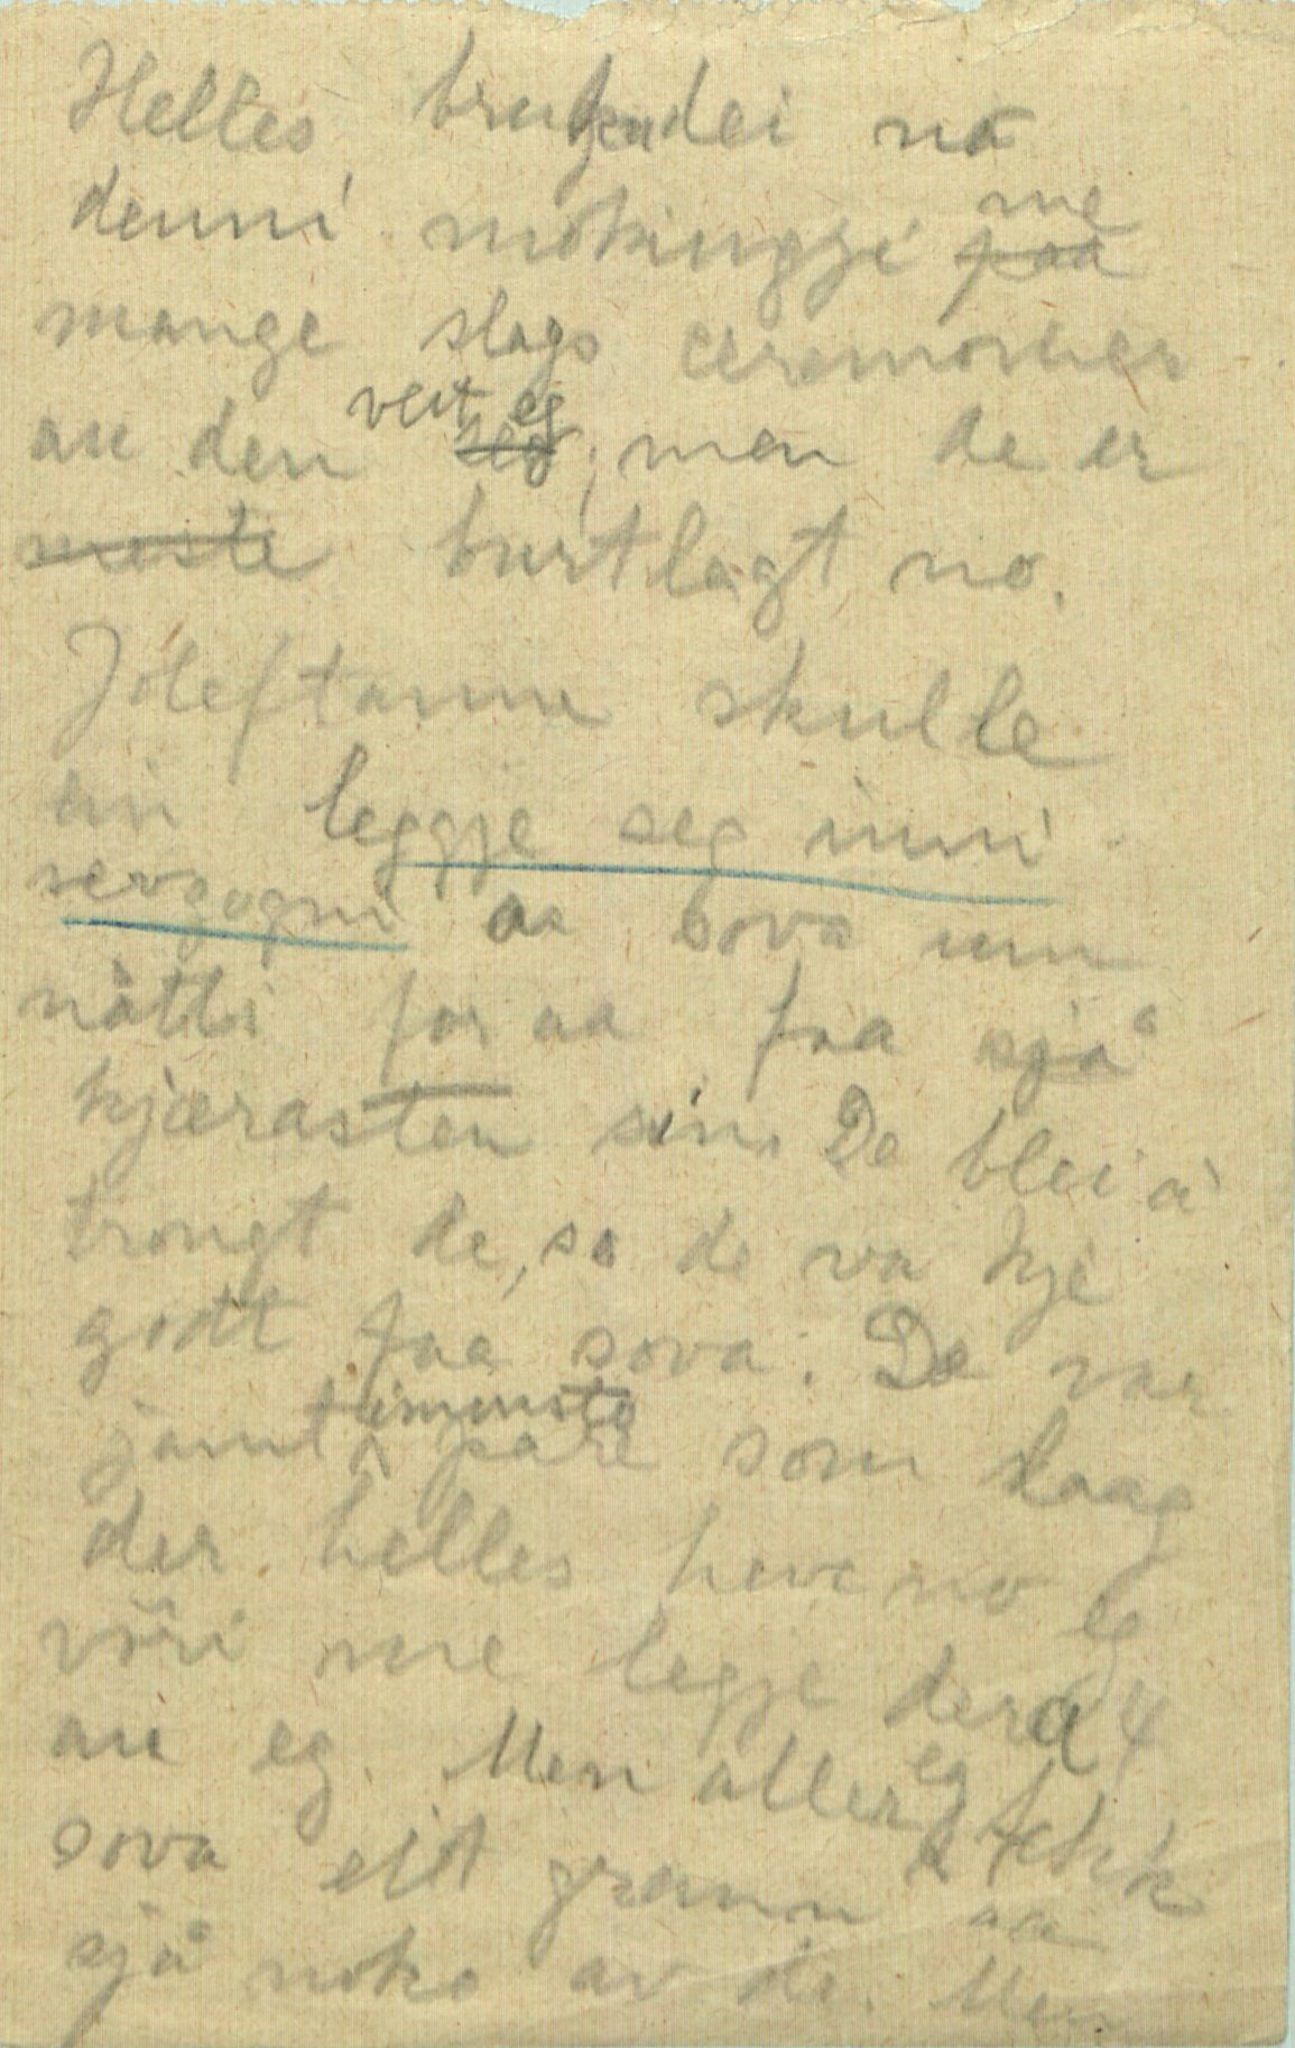 Helles bruka dei no
denni mokingji me paa
mange slags ceremonier
au den veit eg seo, men de er
meste burtlagt no.
Joleftanne skulle
ein leggje seg inni
sengogni aa sova um
nåtti for aa faa sjå
kjærasten sin. De blei å
trongt de, so de va kje
godt faa sova. De var
jamt iminste pare som laag
der. helles heve no eg
vöri me legje der å
au eg. Men aller eg fekk
sova eit grann aa
sjå noko av de. Men